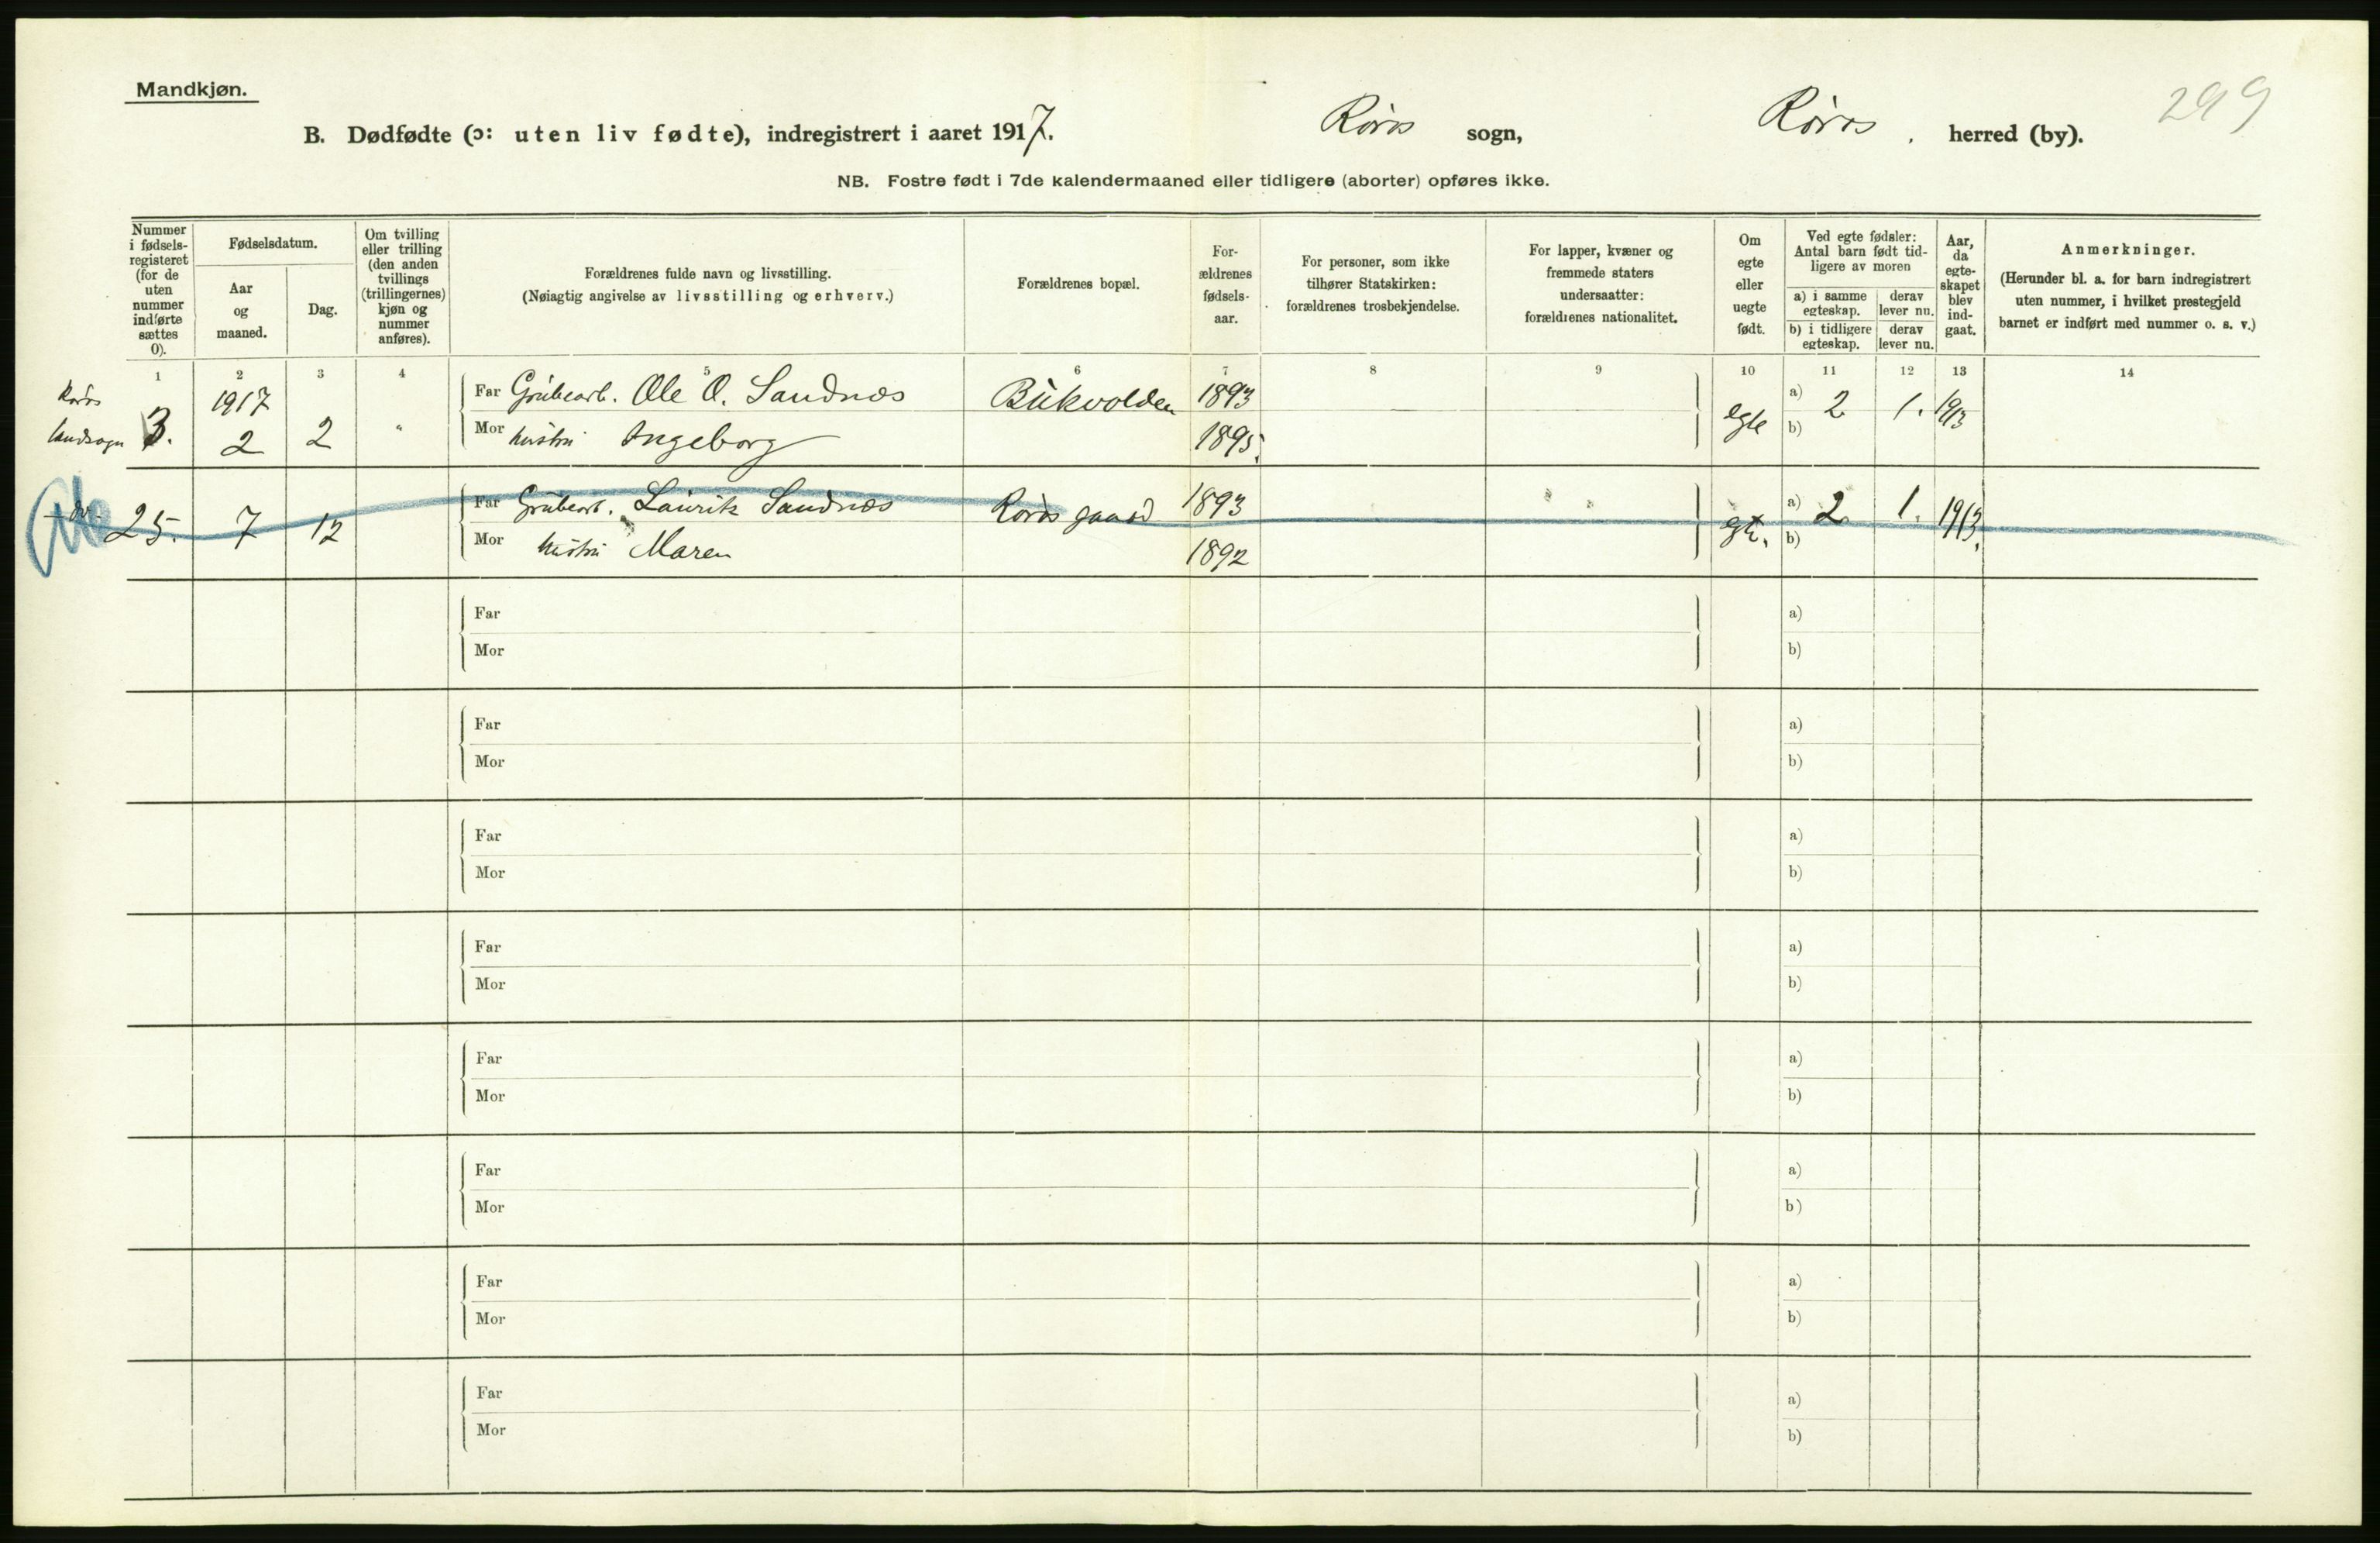 Mandkjøn.
B. Dødfødte (ɔ: uten liv fødte), indregistrert i aaret 1917. Røros sogn, Røros herred (by).
299
NB. Fostre født i 7de kalendermaaned eller tidligere (aborter) opføres ikke.
Nummer i fødsels-registeret (for de uten nummer indførte sættes 0).
Fødselsdatum.
Aar og maaned.
Dag.
Om tvilling eller trilling (den anden tvillings (trillingernes) kjøn og nummer anføres).
Forældrenes fulde navn og livsstilling.
(Nøiagtig angivelse av livsstilling og erhverv.)
Forældrenes bopæl.
For-ældrenes fødsels-aar.
For personer, som ikke tilhører Statskirken: forældrenes trosbekjendelse.
For lapper, kvæner og fremmede staters undersaatter: forældrenes nationalitet.
Om egte eller uegte født.
Ved egte fødsler: Antal barn født tid-ligere av moren
a) i samme egteskap. derav lever nu.
b) i tidligere egteskap. derav lever nu.
Aar, da egte-skapet blev ind-gaat.
Anmerkninger.
(Herunder bl. a. for barn indregistrert uten nummer, i hvilket prestegjeld barnet er indført med nummer o. s. v.)
1 2 3 4 5 6 7 8 9 10 11 12 13 14
Røros landsogn 3. 1917 2 2 " Far Grubearb. Ole O. Sandnes Bukvolden 1893 egte a) 2 1. 1913
Mor hustru Ingeborg 1895. b)
do. 25. 7 12 Far Grubearb. Lauritz Sandnæs Røros gaard 1893 " " gt. a) 2 1. 1913.
Mor hustru Maren 1892 b)
Far a)
Mor b)
Far a)
Mor b)
Far a)
Mor b)
Far a)
Mor b)
Far a)
Mor b)
Far a)
Mor b)
Far a)
Mor b)
Far a)
Mor b)